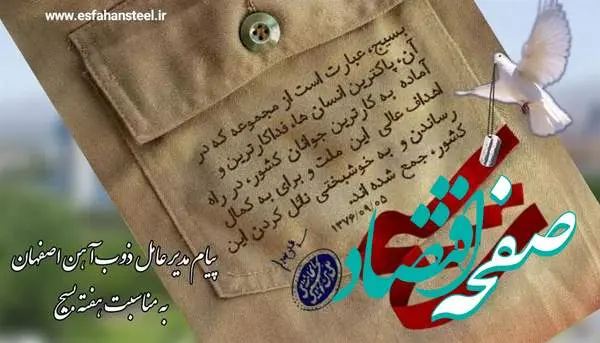 www.esfahansteel.ir
بسیج، عبارت است از مجموعه که در
آن، پاکترین انسان ها، فداکارترین و
آماده به کارترین جوانان کشور، در راه
اهداف عالی این ملت و برای به کمال
رساندن و به خوشبختی نائل کردن این
کشور، جمع شده اند.
۱۳۷۶/۰۹/۰۵
صفحه اقتصاد
پیام مدیرعامل ذوب آهن اصفهان
به مناسبت هفته بسیج